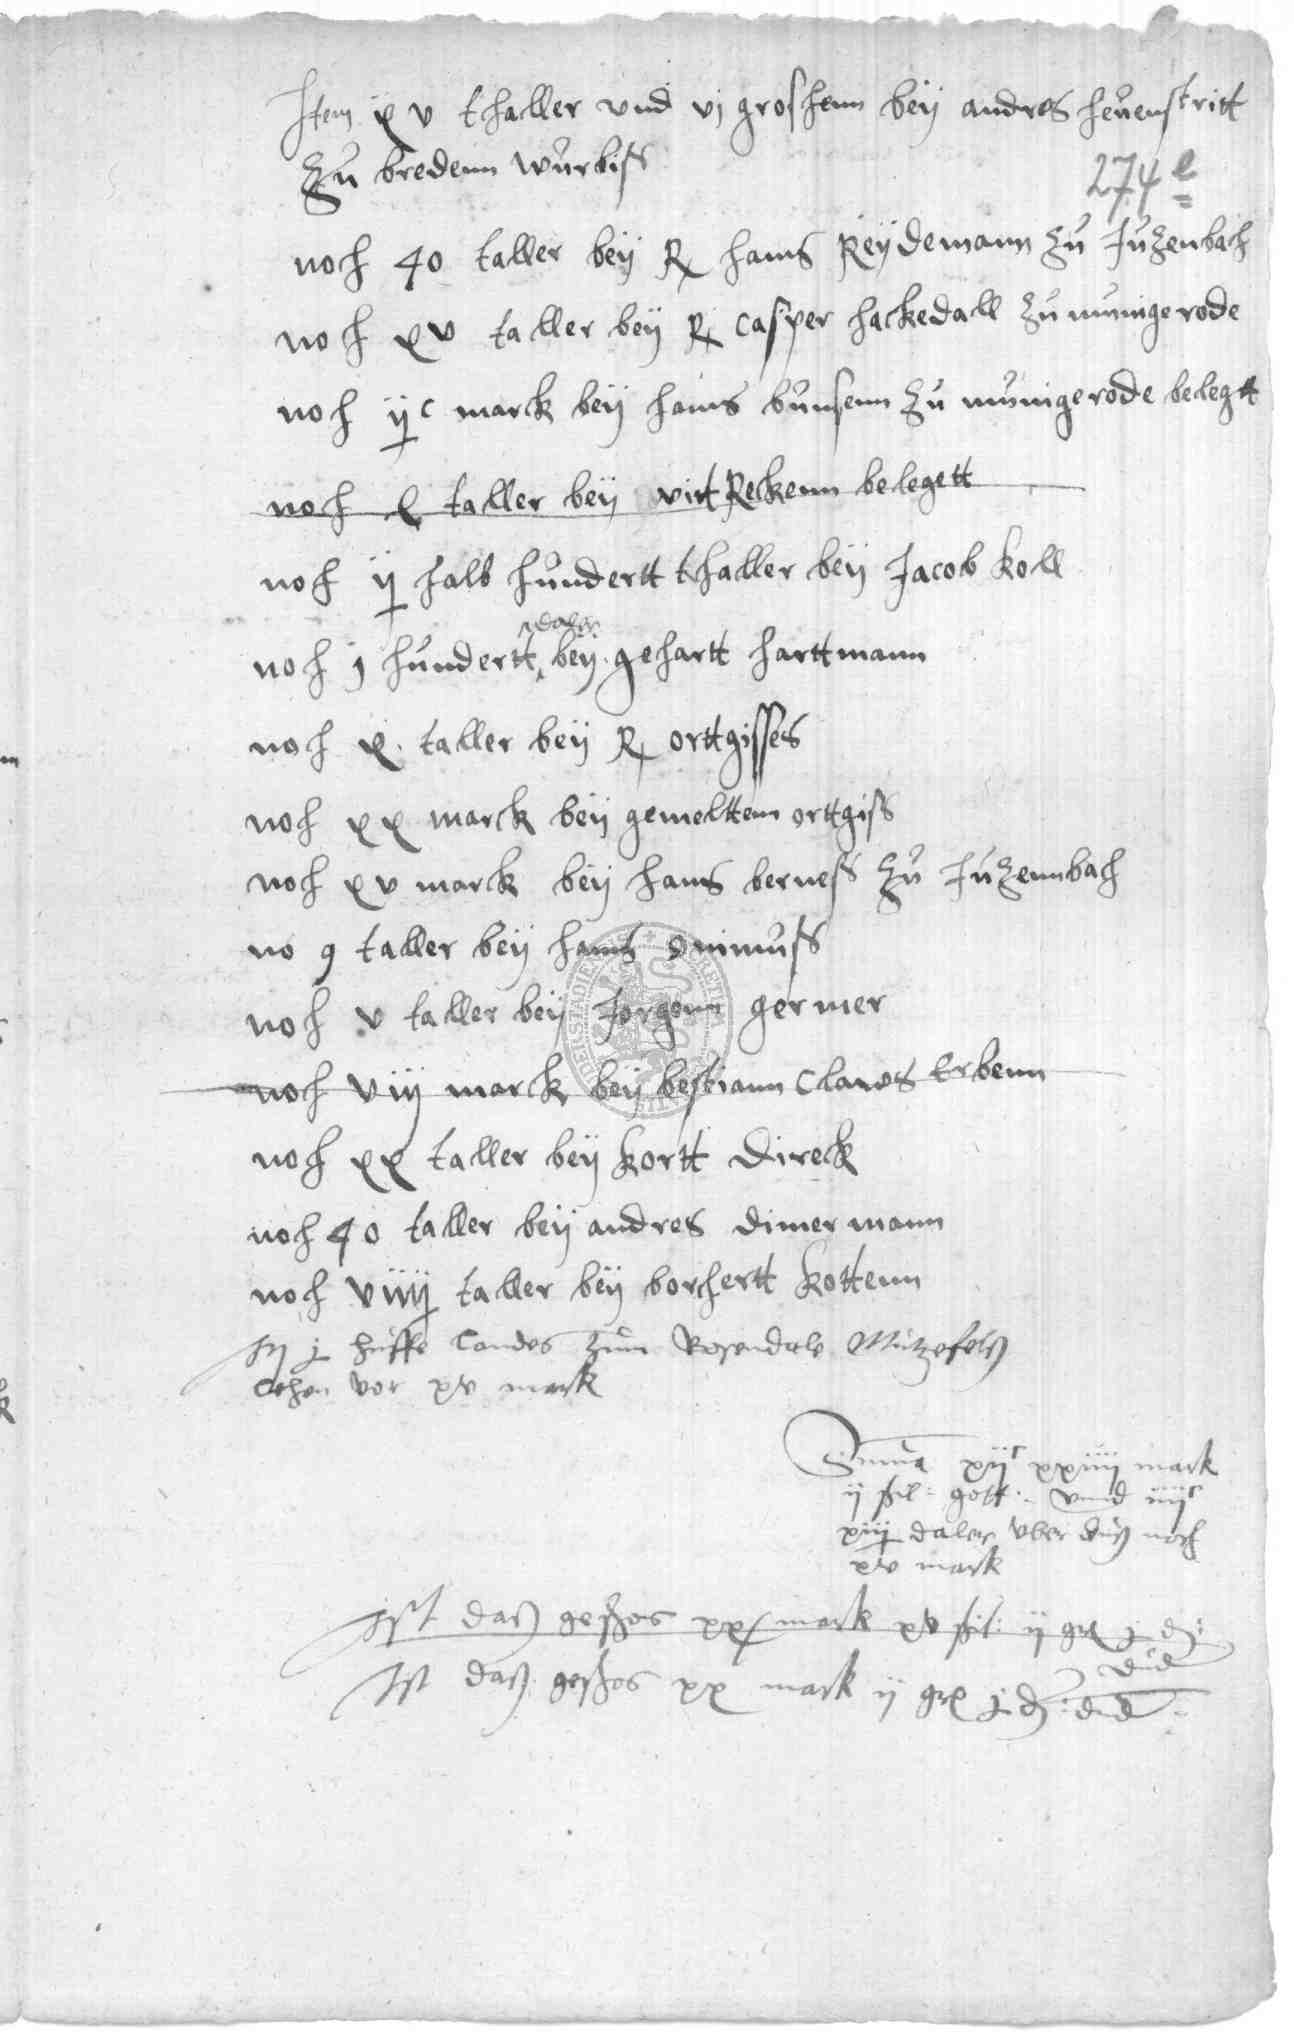 Item xv thaller und vj groschenn beÿ andres heúenstritt
Zú bredenn wúrbiss
274 e
noch 40 taller beÿ R hans Reÿdemann zú Júzenbach
noch xv taller beÿ R Casper hackedall zú múnigerode
noch ijc marck beÿ hans búnsenn zú múnigerode belegtt
noch l taller beÿ virt Reckenn belegett
noch ij halb húndertt thaller beÿ Jacob Koll
daler
noch j húndertt beÿ gehartt harttmann
noch x taller beÿ R orttgisses
noch xx marck beÿ gemelttem orttgiss
noch xv marck beÿ hans berness zú Júzennbach
no 9 taller beÿ hans onimúss
noch v taller beÿ Jorgenn germer
noch viij marck beÿ bestiann Clawes Erbenn
noch xx taller beÿ Kortt direck
noch 40 taller beÿ andres dimermann
noch viiij taller beÿ borchertt Kottenn
j húffe Landes zúm Rosendale
Lehen vor xv mark
Summa xijc xxiiij mark
ij schil: gott: unnd iiijc
xiij daler uber diß noch
xv mark
Ist daß geschos xx mark xv schil: ij gr j d:
dd
Ist daß geschos xx mark ij gr j d: dd